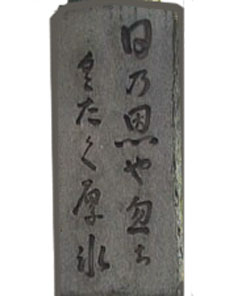 日乃恩や忽ち
具たく厚氷